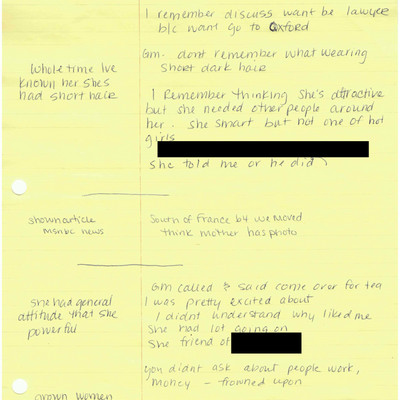 I remember discuss want be lawyer
b/c want go to Oxford
GM- dont remember what wearing
short dark hair
Whole time Ive
known her shes
had short hair
I Remember thinking She's attractive
but she needed other people around
her. she smart but not one of hot
girls
She told me or he did
shown article
msnbc news
South of France b4 we moved
think mother has photo
she had general
attitude that she
powerful
GM called & said come over for tea
I was pretty excited about
I didnt understand why liked me
She had lot going on
She friend of
you didnt ask about people work,
money - frowned upon
grown women